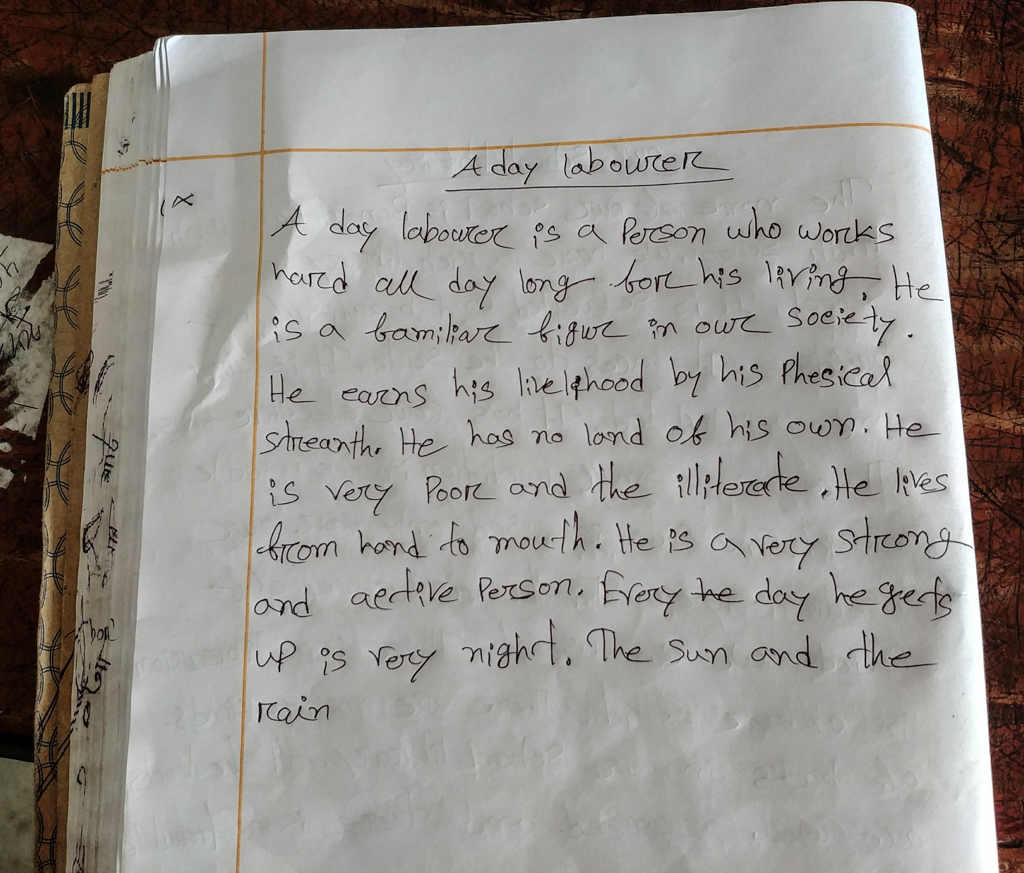 A day labourer
A day labourer is a Person who works
hard all day long for his living. He
is a familiar figur in our society.
He earns his livelphood by his Phesical
streanth. He has no land of his own. He
is very Poor and the illiterate. He lives
from hand to mouth. He is a very strong
and aective Person. Every he day he geets
up is very night. The sun and the
rain